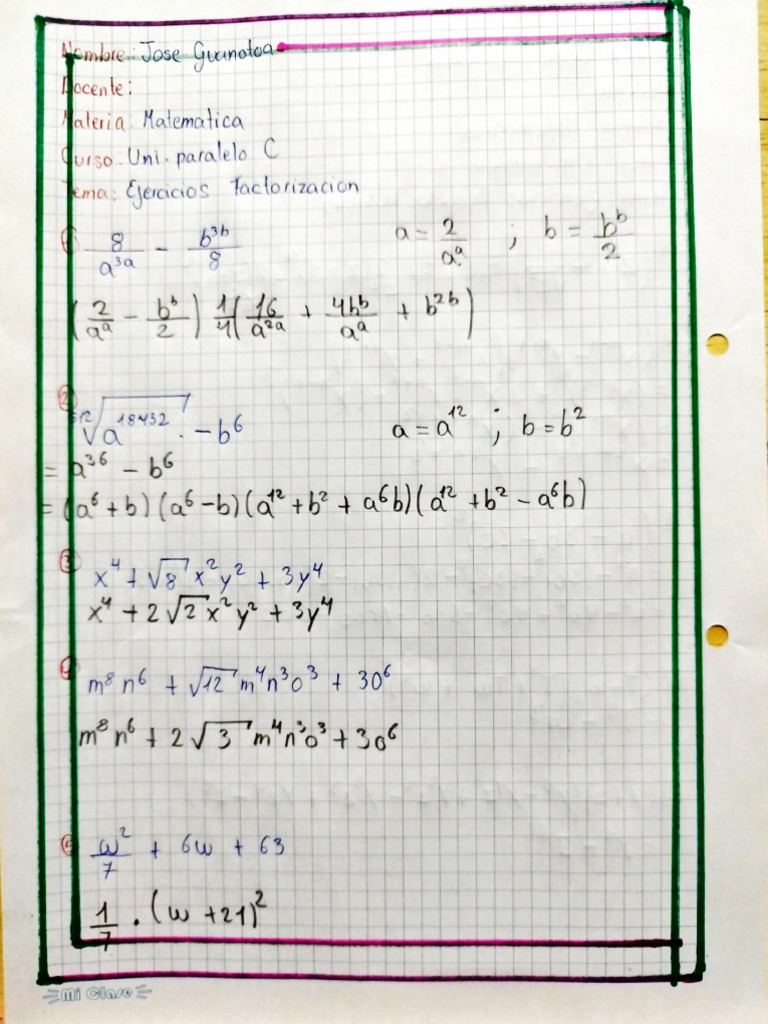 Nombre: Jose Guanotoa
Docente:
Materia: Matematica
Curso: Uni. paralelo C
Tema: Ejercicios Factorizacion
1 8/a^{3a} - b^{3b}/8 a = 2/a^a ; b = b^b/2
(2/a^a - b^b/2) 1/4 (16/a^{2a} + 4b^b/a^a + b^{2b})
2 \sqrt[512]{a^{18432}} - b^6 a = a^{12} ; b = b^2
= a^{36} - b^6
= (a^6 + b)(a^6 - b)(a^{12} + b^2 + a^6b)(a^{12} + b^2 - a^6b)
3 x^4 + √8 x^2y^2 + 3y^4
x^4 + 2√2 x^2y^2 + 3y^4
4 m^8n^6 + √12 m^4n^3o^3 + 3o^6
m^8n^6 + 2√3 m^4n^3o^3 + 3o^6
5 w^2/7 + 6w + 63
1/7 . (w + 21)^2
Mi Clase